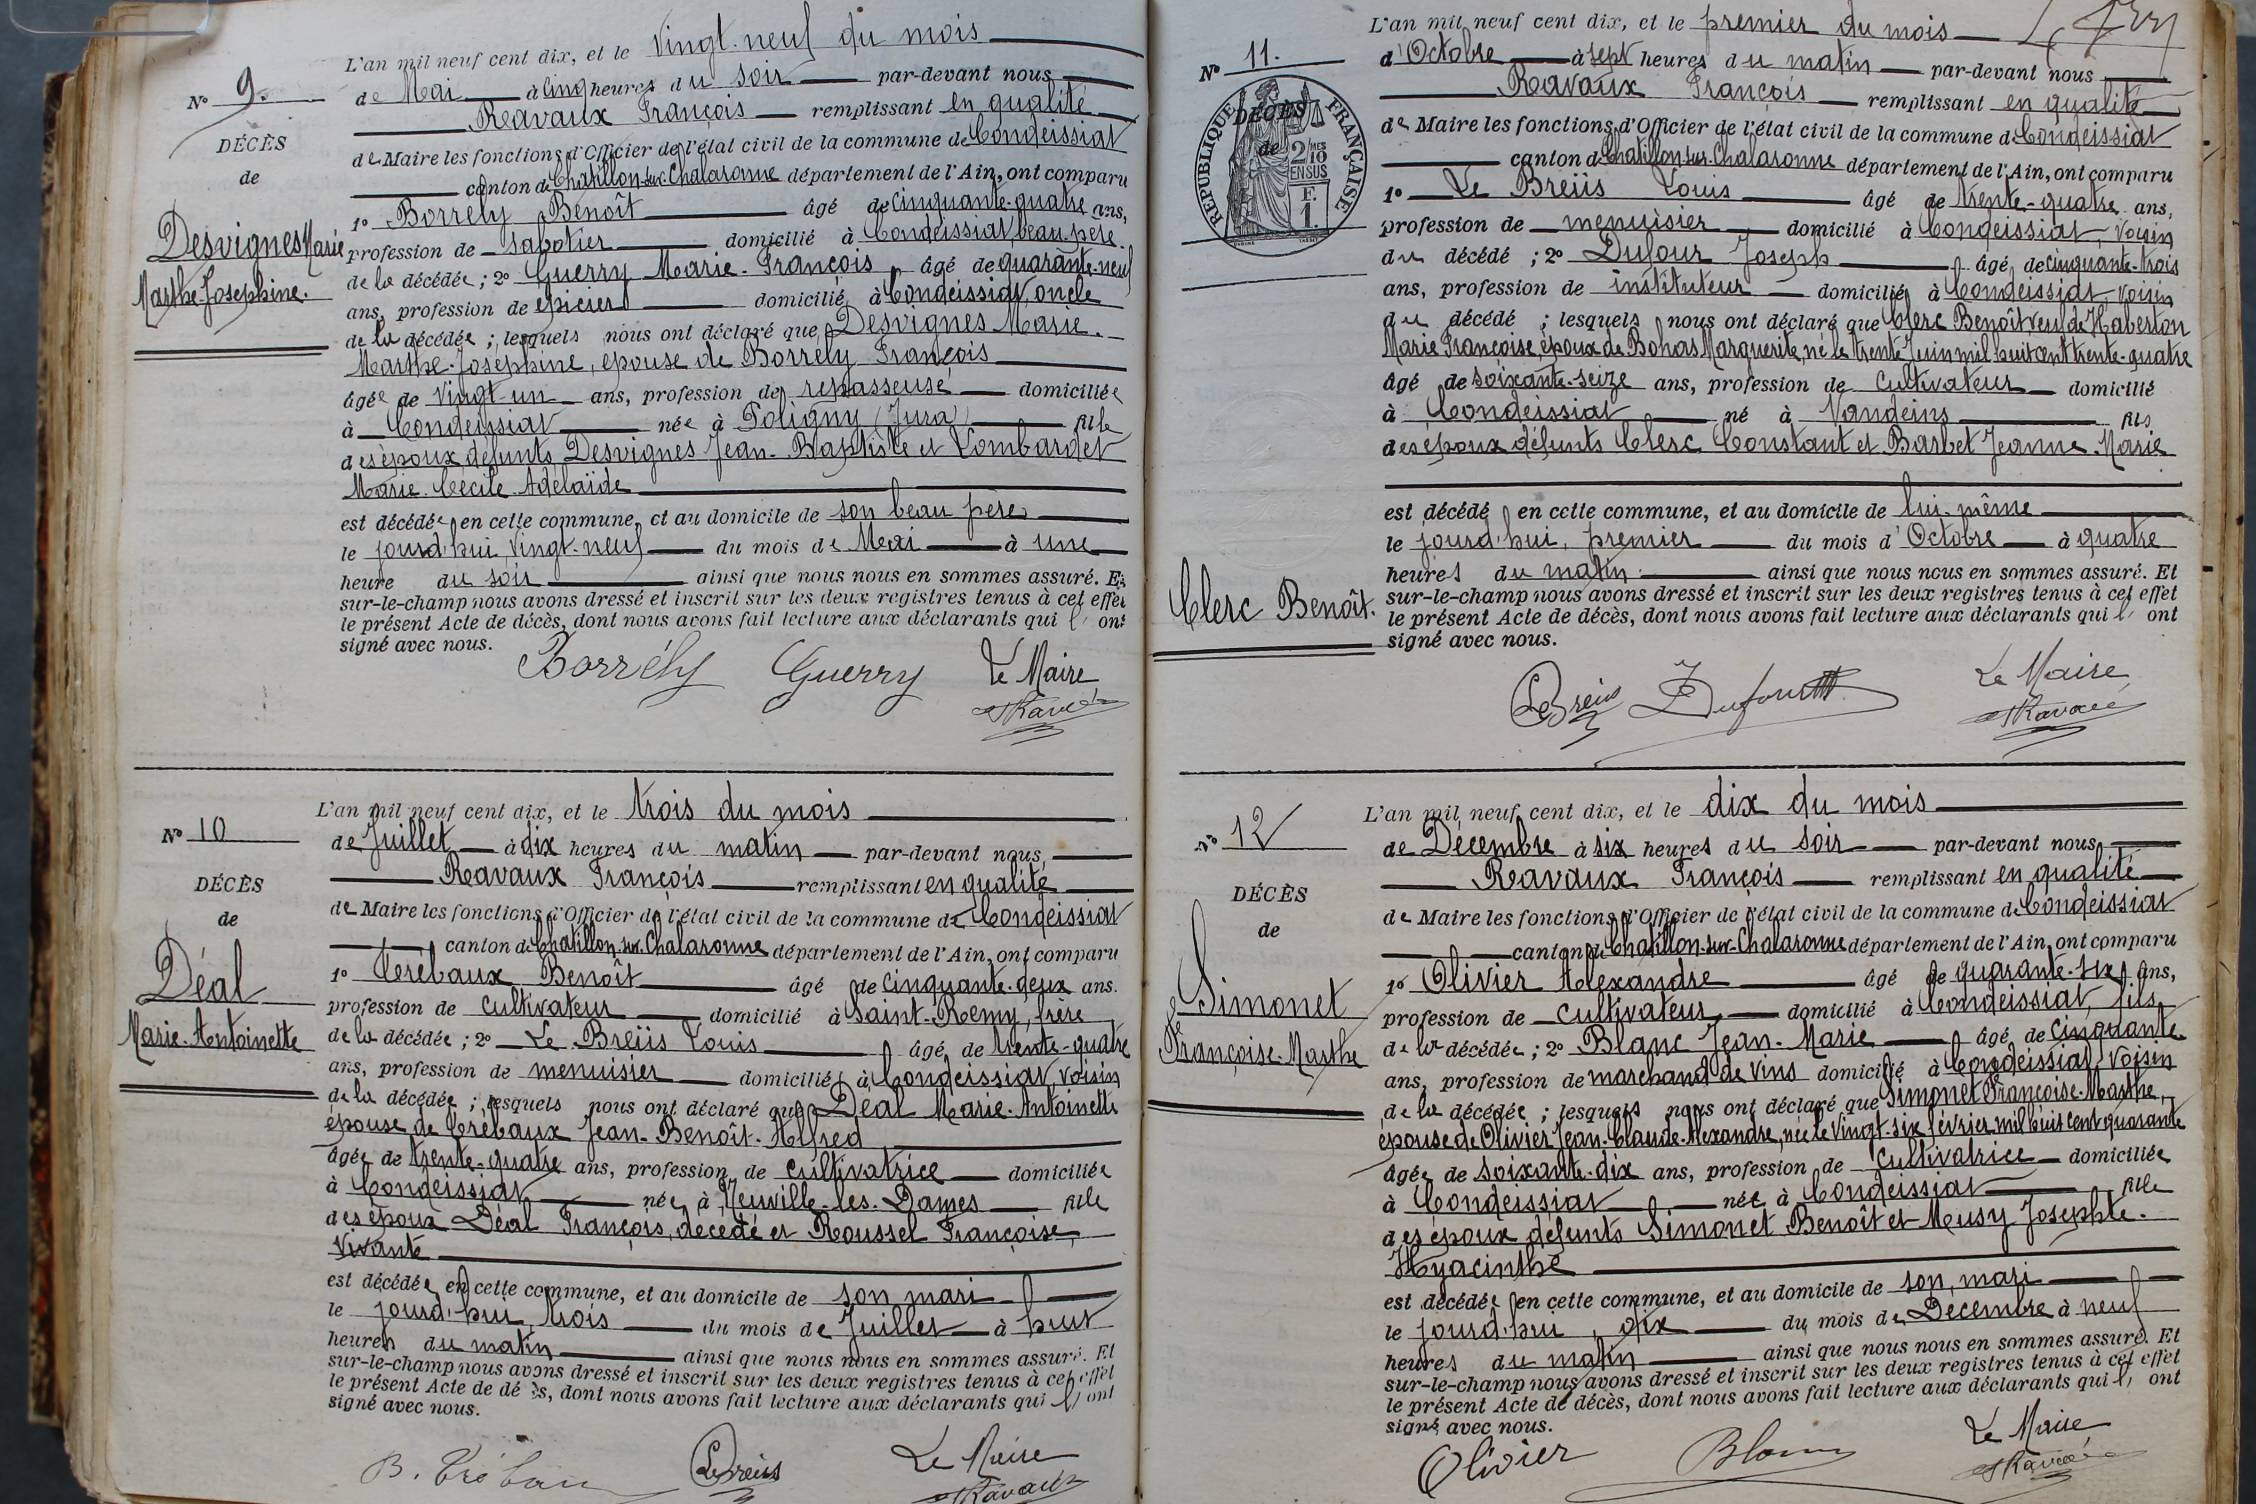 L'an mil neuf cent dix, et le vingt-neuf du mois
N° 9.
de Mai à cinq heures du soir par-devant nous
Ravaux François remplissant en qualité
DÉCÈS
de Maire les fonctions d'Officier de l'état civil de la commune de Condeissiat
de
canton de Châtillon-sur-Chalaronne département de l'Ain, ont comparu
1° Borrély Benoît âgé de cinquante-quatre ans,
Desvignes Marie
profession de sabotier domicilié à Condeissiat, beau-père
de la décédée ; 2° Guerry Marie-François âgé de quarante-neuf
Marthe-Josephine.
ans, profession de épicier domicilié à Condeissiat, oncle
de la décédée ; lesquels nous ont déclaré que Desvignes Marie-
Marthe-Joséphine, épouse de Borrély François
âgée de vingt-un ans, profession de repasseuse domiciliée
à Condeissiat née à Poligny (Jura) fille
des époux défunts Desvignes Jean-Baptiste et Lombardet
Marie-Cécile-Adélaïde
est décédée en cette commune, et au domicile de son beau père
le jourd'hui vingt-neuf du mois de Mai à une
heure du soir ainsi que nous nous en sommes assuré. Et
sur-le-champ nous avons dressé et inscrit sur les deux registres tenus à cet effet
le présent Acte de décès, dont nous avons fait lecture aux déclarants qui l' ont
signé avec nous.
Borrély Guerry Le Maire
Ravaux
L'an mil neuf cent dix, et le trois du mois
N° 10
de Juillet à dix heures du matin par-devant nous,
Ravaux François remplissant en qualité
DÉCÈS
de Maire les fonctions d'Officier de l'état civil de la commune de Condeissiat
de
canton de Châtillon-sur-Chalaronne département de l'Ain, ont comparu
1° Crébaux Benoît âgé de cinquante-deux ans.
Déal
profession de cultivateur domicilié à Saint-Remy, frère
Marie-Antoinette
de la décédée ; 2° Le Breüs Louis âgé de trente-quatre
ans, profession de menuisier domicilié à Condeissiat, voisin
de la décédée ; lesquels nous ont déclaré que Déal Marie-Antoinette
épouse de Crébaux Jean-Benoît-Alfred
âgée de trente-quatre ans, profession de cultivatrice domiciliée
à Condeissiat née à Neuville-les-Dames fille
des époux Déal François, décédé et Roussel Françoise,
vivante
est décédée en cette commune, et au domicile de son mari
le jourd'hui trois du mois de Juillet à huit
heures du matin ainsi que nous nous en sommes assuré. Et
sur-le-champ nous avons dressé et inscrit sur les deux registres tenus à cet effet
le présent Acte de dé ès, dont nous avons fait lecture aux déclarants qui l' ont
signé avec nous.
B. Le Breüs Le Maire
Ravaux
L'an mil neuf cent dix, et le premier du mois
N° 11.
d'Octobre à sept heures du matin par-devant nous
Ravaux François remplissant en qualité
RÉPUBLIQUE FRANÇAISE
DÉCÈS
de Maire les fonctions d'Officier de l'état civil de la commune de Condeissiat
de
2/10
MES
EN SUS
F.
1.
canton de Châtillon-sur-Chalaronne département de l'Ain, ont comparu
1° Le Breüs Louis âgé de trente-quatre ans,
profession de menuisier domicilié à Condeissiat, voisin
du décédé ; 2° Dufour Joseph âgé de cinquante-trois
ans, profession de instituteur domicilié à Condeissiat, voisin
du décédé ; lesquels nous ont déclaré que Clerc Benoît veuf de Haberton
Marie Françoise, époux de Bohas Marguerite, né le trente Juin mil huit cent trente-quatre
âgé de soixante-seize ans, profession de cultivateur domicilié
à Condeissiat né à Vandeins fils
des époux défunts Clerc Constant et Barbet Jeanne-Marie
est décédé en cette commune, et au domicile de lui-même
le jourd'hui, premier du mois d'Octobre à quatre
heures du matin ainsi que nous nous en sommes assuré. Et
Clerc Benoît.
sur-le-champ nous avons dressé et inscrit sur les deux registres tenus à cet effet
le présent Acte de décès, dont nous avons fait lecture aux déclarants qui l' ont
signé avec nous.
Le Breüs Dufour Le Maire
Ravaux
L'an mil neuf cent dix, et le dix du mois
N° 12
de Décembre à six heures du soir par-devant nous
Ravaux François remplissant en qualité
DÉCÈS
de Maire les fonctions d'Officier de l'état civil de la commune de Condeissiat
de
canton de Châtillon-sur-Chalaronne département de l'Ain, ont comparu
1° Olivier Alexandre âgé de quarante-six ans,
Simonet
profession de cultivateur domicilié à Condeissiat, fils
Françoise-Marthe
de la décédée ; 2° Blanc Jean-Marie âgé de cinquante
ans, profession de marchand de vins domicilié à Condeissiat, voisin
de la décédée ; lesquels nous ont déclaré que Simonet Françoise-Marthe,
épouse de Olivier Jean-Claude-Alexandre, née le vingt-six février mil huit cent quarante
âgée de soixante-dix ans, profession de cultivatrice domiciliée
à Condeissiat née à Condeissiat fille
des époux défunts Simonet Benoît et Musy Josephte-
Hyacinthe
est décédée en cette commune, et au domicile de son mari
le jourd'hui, dix du mois de Décembre à neuf
heures du matin ainsi que nous nous en sommes assuré. Et
sur-le-champ nous avons dressé et inscrit sur les deux registres tenus à cet effet
le présent Acte de décès, dont nous avons fait lecture aux déclarants qui l' ont
signé avec nous.
Olivier Blanc Le Maire
Ravaux